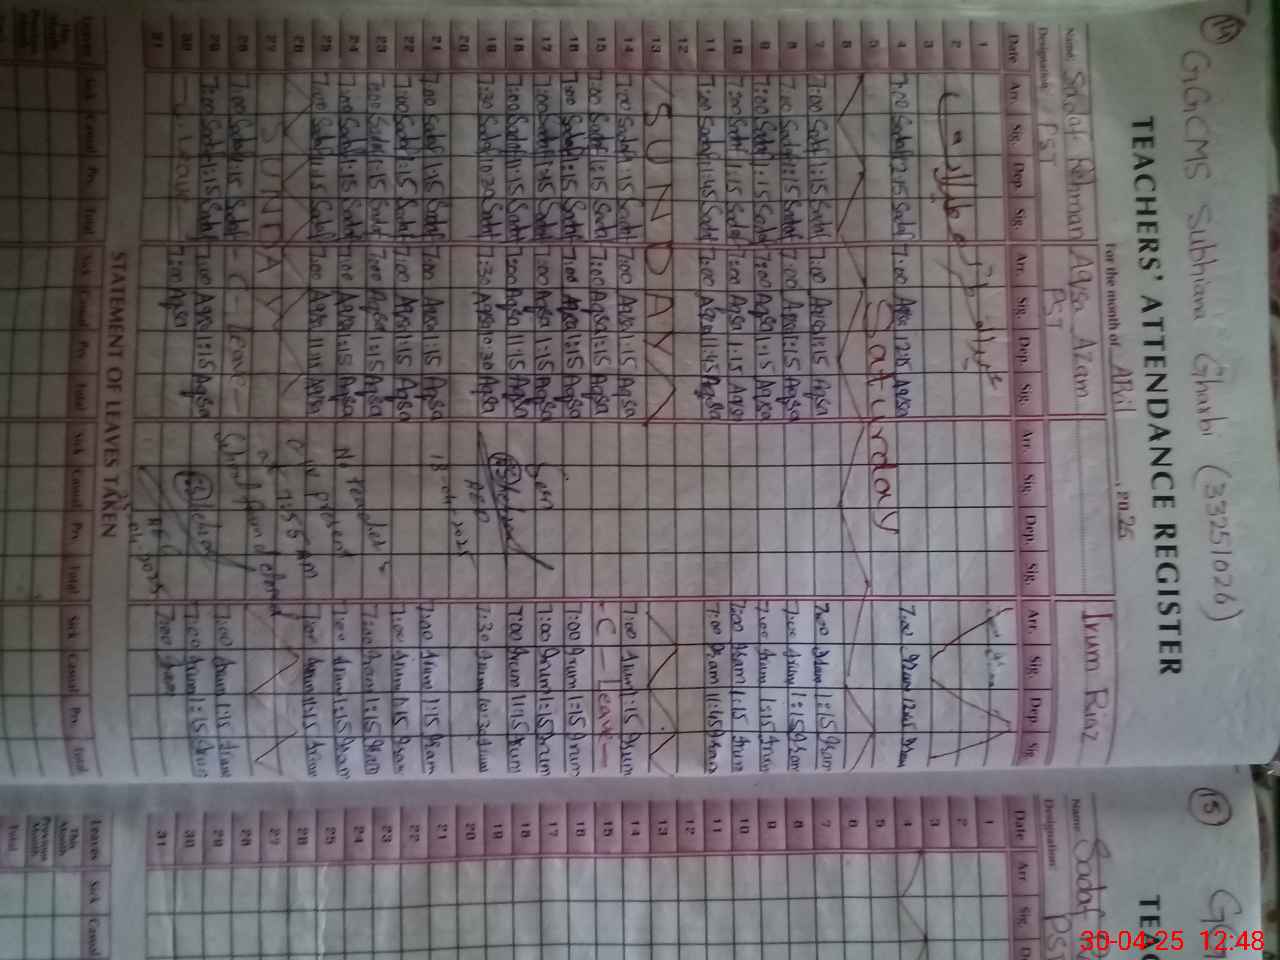 14
GGCMS Subhiana Gharbi (33251026)
TEACHERS' ATTENDANCE REGISTER
For the month of APril, 2025
Name: Sadaf Rehman Aqsa Azam Irum Riaz
Designation: PST PST
Date Arr. Sig. Dep. Sig. Arr. Sig. Dep. Sig. Arr. Sig. Dep. Sig. Arr. Sig. Dep. Sig.
1
2
3
4 7:00 Sadaf 12:15 Sadaf 7:00 Aqsa 12:15 Aqsa 7:00 Irum 12:15 Irum
5 Saturday
6
7 7:00 Sadaf 1:15 Sadaf 7:00 Aqsa 1:15 Aqsa 7:00 Irum 1:15 Irum
8 7:00 Sadaf 1:15 Sadaf 7:00 Aqsa 1:15 Aqsa 7:00 Irum 1:15 Irum
9 7:00 Sadaf 1:15 Sadaf 7:00 Aqsa 1:15 Aqsa 7:00 Irum 1:15 Irum
10 7:00 Sadaf 1:15 Sadaf 7:00 Aqsa 1:15 Aqsa 7:00 Irum 1:15 Irum
11 7:00 Sadaf 11:45 Sadaf 7:00 Aqsa 11:45 Aqsa 7:00 Irum 11:45 Irum
12
13 SUNDAY
14 7:00 Sadaf 1:15 Sadaf 7:00 Aqsa 1:15 Aqsa 7:00 Irum 1:15 Irum
15 7:00 Sadaf 1:15 Sadaf 7:00 Aqsa 1:15 Aqsa - C - Leave -
16 7:00 Sadaf 1:15 Sadaf 7:00 Aqsa 1:15 Aqsa 7:00 Irum 1:15 Irum
17 7:00 Sadaf 1:15 Sadaf 7:00 Aqsa 1:15 Aqsa Seen 7:00 Irum 1:15 Irum
18 7:00 Sadaf 11:15 Sadaf 7:00 Aqsa 11:15 Aqsa 7:00 Irum 11:15 Irum
19 7:30 Sadaf 10:30 Sadaf 7:30 Aqsa 10:30 Aqsa AEO 7:30 Irum 10:30 Irum
20 18-04-2025
21 7:00 Sadaf 1:15 Sadaf 7:00 Aqsa 1:15 Aqsa 7:00 Irum 1:15 Irum
22 7:00 Sadaf 1:15 Sadaf 7:00 Aqsa 1:15 Aqsa 7:00 Irum 1:15 Irum
23 7:00 Sadaf 1:15 Sadaf 7:00 Aqsa 1:15 Aqsa 7:00 Irum 1:15 Irum
24 7:00 Sadaf 1:15 Sadaf 7:00 Aqsa 1:15 Aqsa No teacher's 7:00 Irum 1:15 Irum
25 7:00 Sadaf 11:15 Sadaf 7:00 Aqsa 11:15 Aqsa present 7:00 Irum 11:15 Irum
26 at 7:55 AM
27 SUNDAY School found closed
28 7:00 Sadaf 1:15 Sadaf - C - Leave - 7:00 Irum 1:15 Irum
29 7:00 Sadaf 1:15 Sadaf 7:00 Aqsa 1:15 Aqsa 7:00 Irum 1:15 Irum
30 Leave 7:00 Aqsa AEO 7:00 Irum
31 04-2025
STATEMENT OF LEAVES TAKEN
Leaves Sick Casual Prv. Total Sick Casual Prv. Total Sick Casual Prv. Total Sick Casual Prv. Total
This Month
Previous Month
15
TEAC
Name: Sadaf
Designation: PST
Date Arr. Sig.
1
2
3
4
5
6
7
8
9
10
11
12
13
14
15
16
17
18
19
20
21
22
23
24
25
26
27
28
29
30
31
Leaves Sick Casual
This Month
Previous Month
Total
30-04-25 12:48